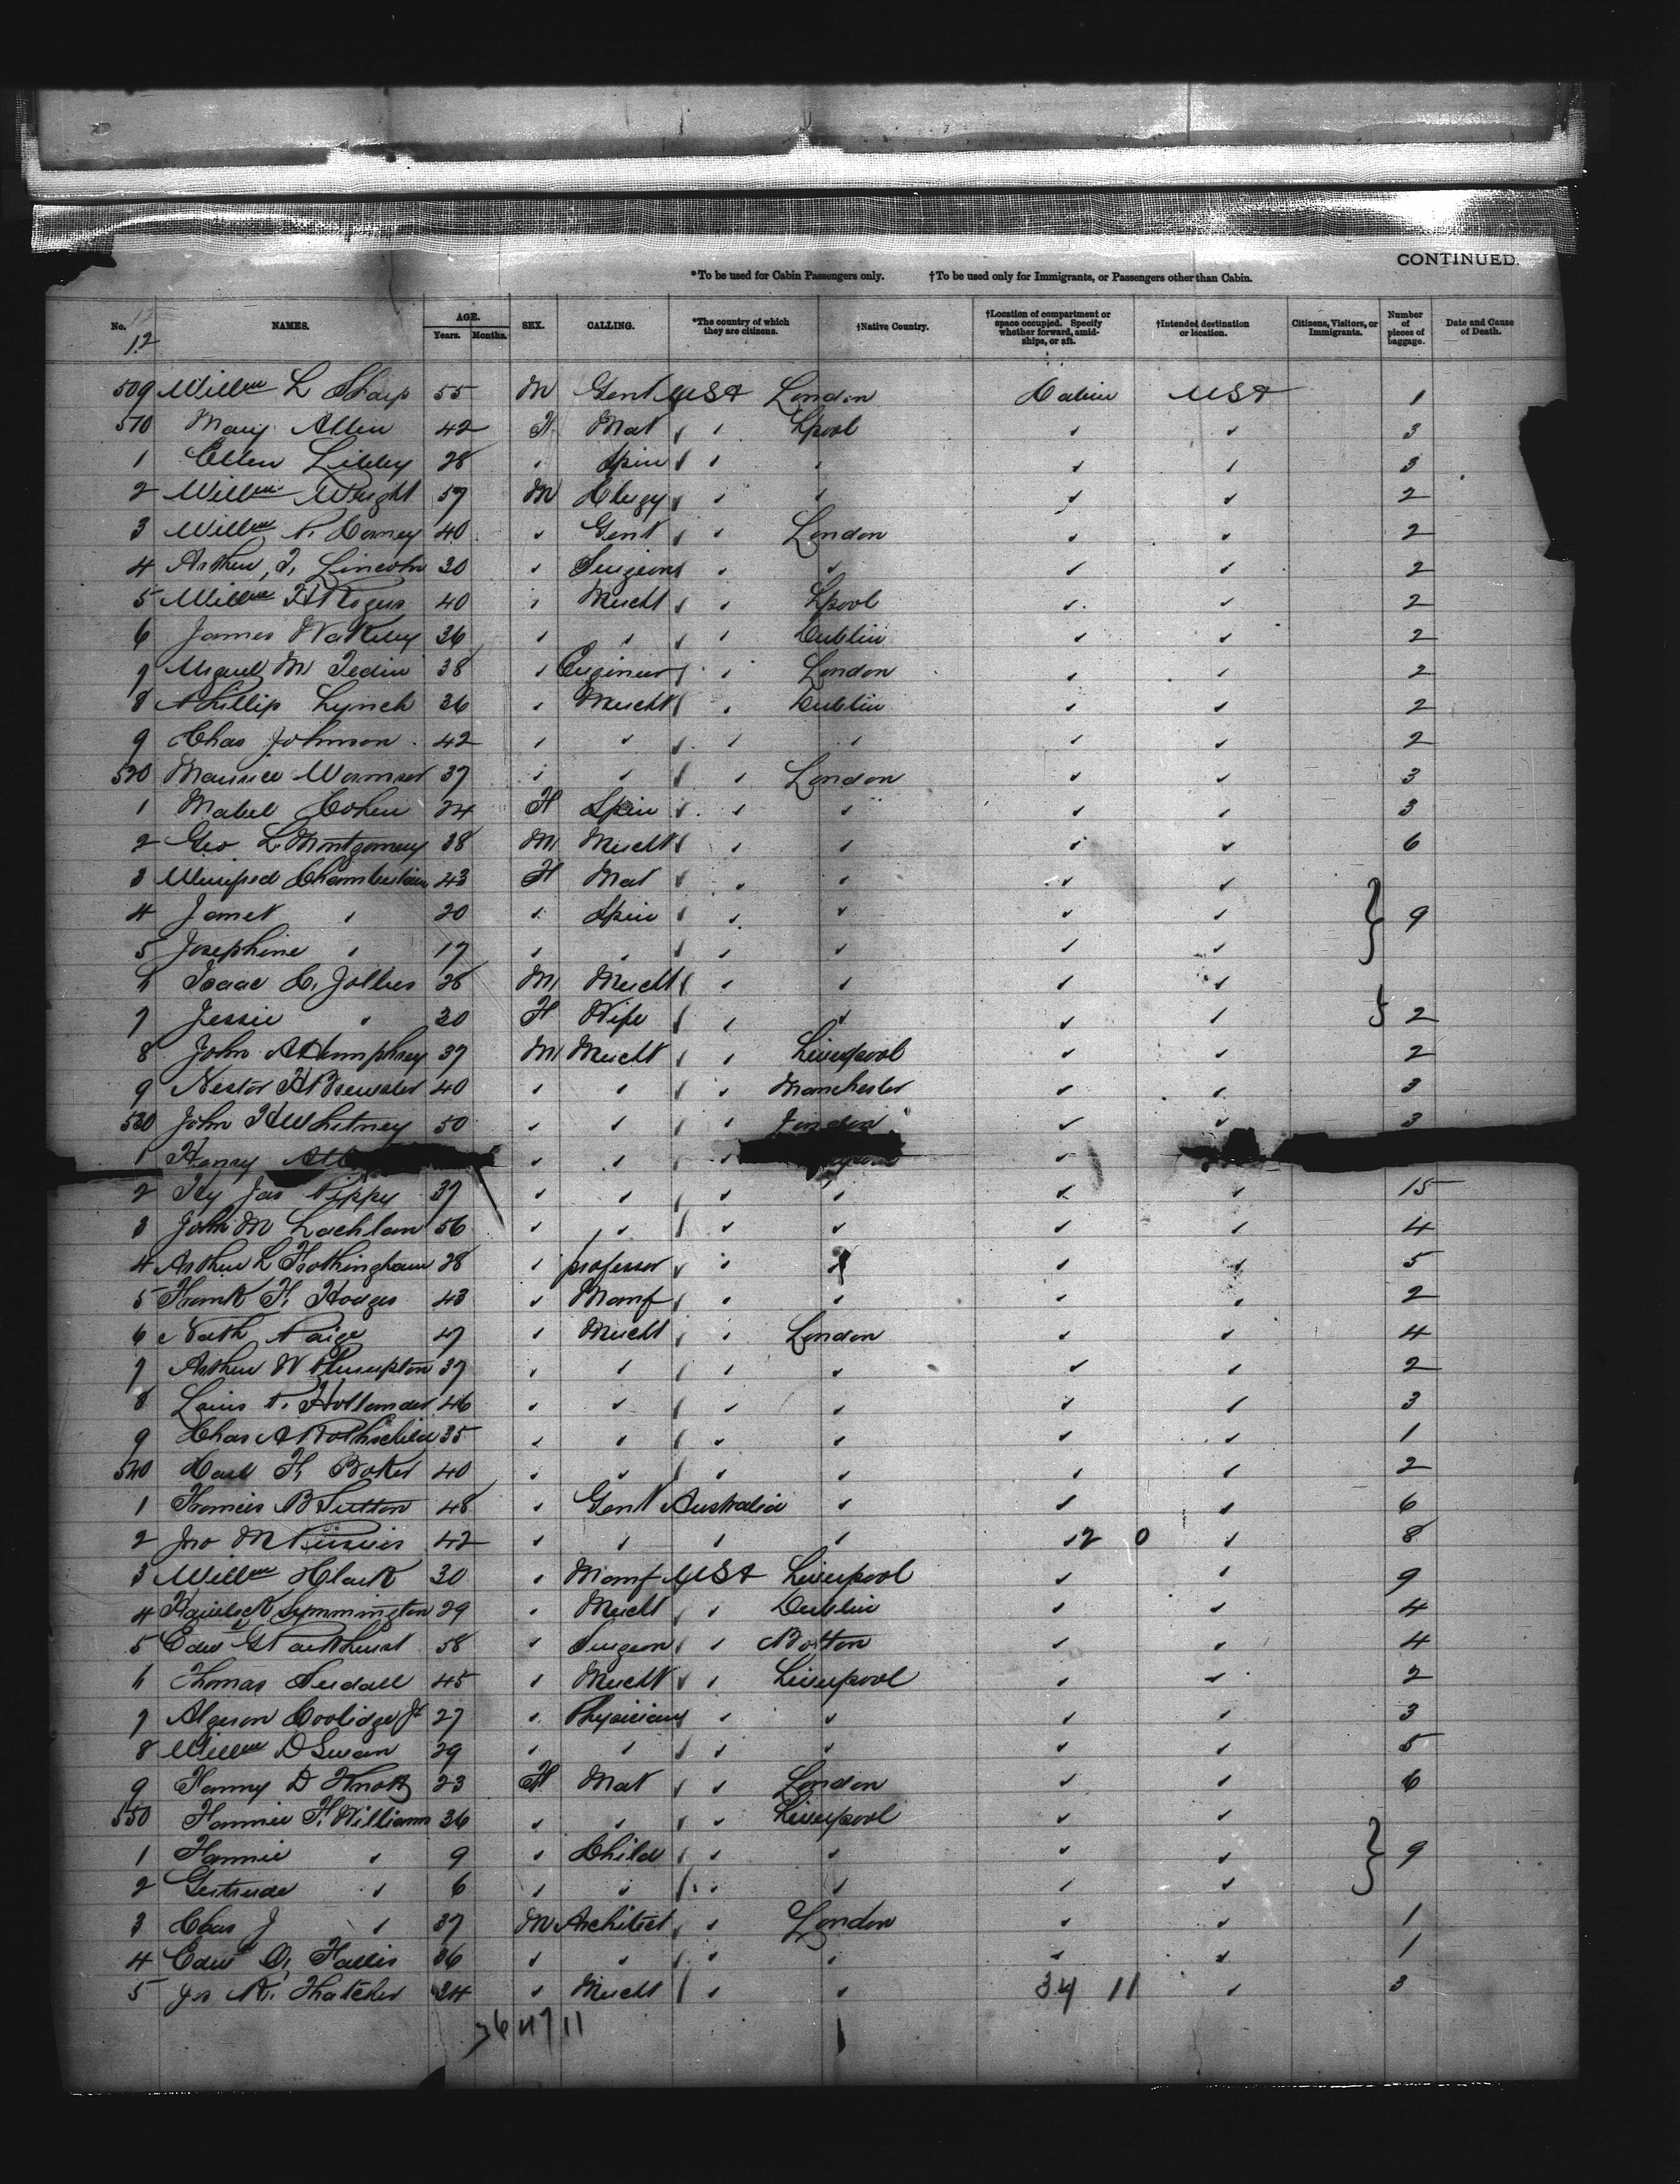 CONTINUED.
*To be used for Cabin Passengers only. †To be used only for Immigrants, or Passengers other than Cabin.
No. NAMES. AGE. Years. Months. SEX. CALLING. *The country of which they are citizens. †Native Country. †Location of compartment or space occupied. Specify whether forward, amidships, or aft. †Intended destination or location. Citizens, Visitors, or Immigrants. Number of pieces of baggage. Date and Cause of Death.
12
509 Willm L Sharp 55 M Gent USA London Cabin USA 1
510 Mary Allen 42 F Mat " " Lpool " " 3
1 Ellen Libby 28 " Spin " " " " " 3
2 Willm Wright 57 M Clergy " " " " " 2
3 Willm 40 " Gent " " London " " 2
4 Arthur Lincoln 30 " Surgeon " " " " " 2
5 Willm H Rogers 40 " Mercht " " Lpool " " 2
6 James Wakeley 36 " " " " Dublin " " 2
7 Miguel M 38 " Engineer " " London " " 2
8 Phillip Lynch 36 " Mercht " " Dublin " " 2
9 Chas Johnson 42 " " " " " " " 2
520 Maurice Wormser 37 " " " " London " " 3
1 Mabel Cohen 24 F Spin " " " " " 3
2 Geo L Montgomery 38 M Mercht " " " " " 6
3 Winifred Chamberlain 43 F Mat " " " " "
4 Janet " 20 " Spin " " " " " } 9
5 Josephine " 17 " " " " " " "
6 Isaac C. Jollies 28 M Mercht " " " " "
7 Jessie " 20 F Wife " " " " " } 2
8 John A Humphrey 37 M Mercht " " Liverpool " " 2
9 Nestor H Brewster 40 " " " " Manchester " " 3
530 John H Whitney 50 " " " " London " " 3
1 Henry " " " " "
2 Hy Jas Pippy 37 " " " " " " " 15
3 John M Lachlan 56 " " " " " " " 4
4 Arthur L Frothingham 28 " professor " " " " " 5
5 Frank F. Hodges 43 " Manf " " " " " 2
6 Nath Paige 47 " Mercht " " London " " 4
7 Arthur W Plumpton 37 " " " " " " " 2
8 Louis P. Hollander 46 " " " " " " " 3
9 Chas A Rothschild 35 " " " " " " " 1
540 Carl F. Boker 40 " " " " " " " 2
1 Francis B Sutton 48 " Gent Australia " " " 6
2 Jno M 42 " " " " 2 0 " 8
3 Willm Clark 30 " Manf USA Liverpool " " 9
4 Havelock Symmington 29 " Mercht " " Dublin " " 4
5 Edw G Parkhurst 58 " Surgeon " " Bolton " " 4
6 Thomas 45 " Mercht " " Liverpool " " 2
7 Algeron Coolidge Jr 27 " Physician " " " " " 3
8 Willm D Swan 29 " " " " " " " 5
9 Fanny D Knott 23 F Mat " " London " " 6
550 Fannie F. Williams 36 " " " " Liverpool " "
1 Fannie " 9 " Child " " " " " } 9
2 Gertrude " 6 " " " " " " "
3 Chas J " 37 M Architect " " London " " 1
4 Edw O. Fallis 36 " " " " " " " 1
5 Js R. Thatcher 34 " Mercht " " " 34 11 " 3
36 47 11